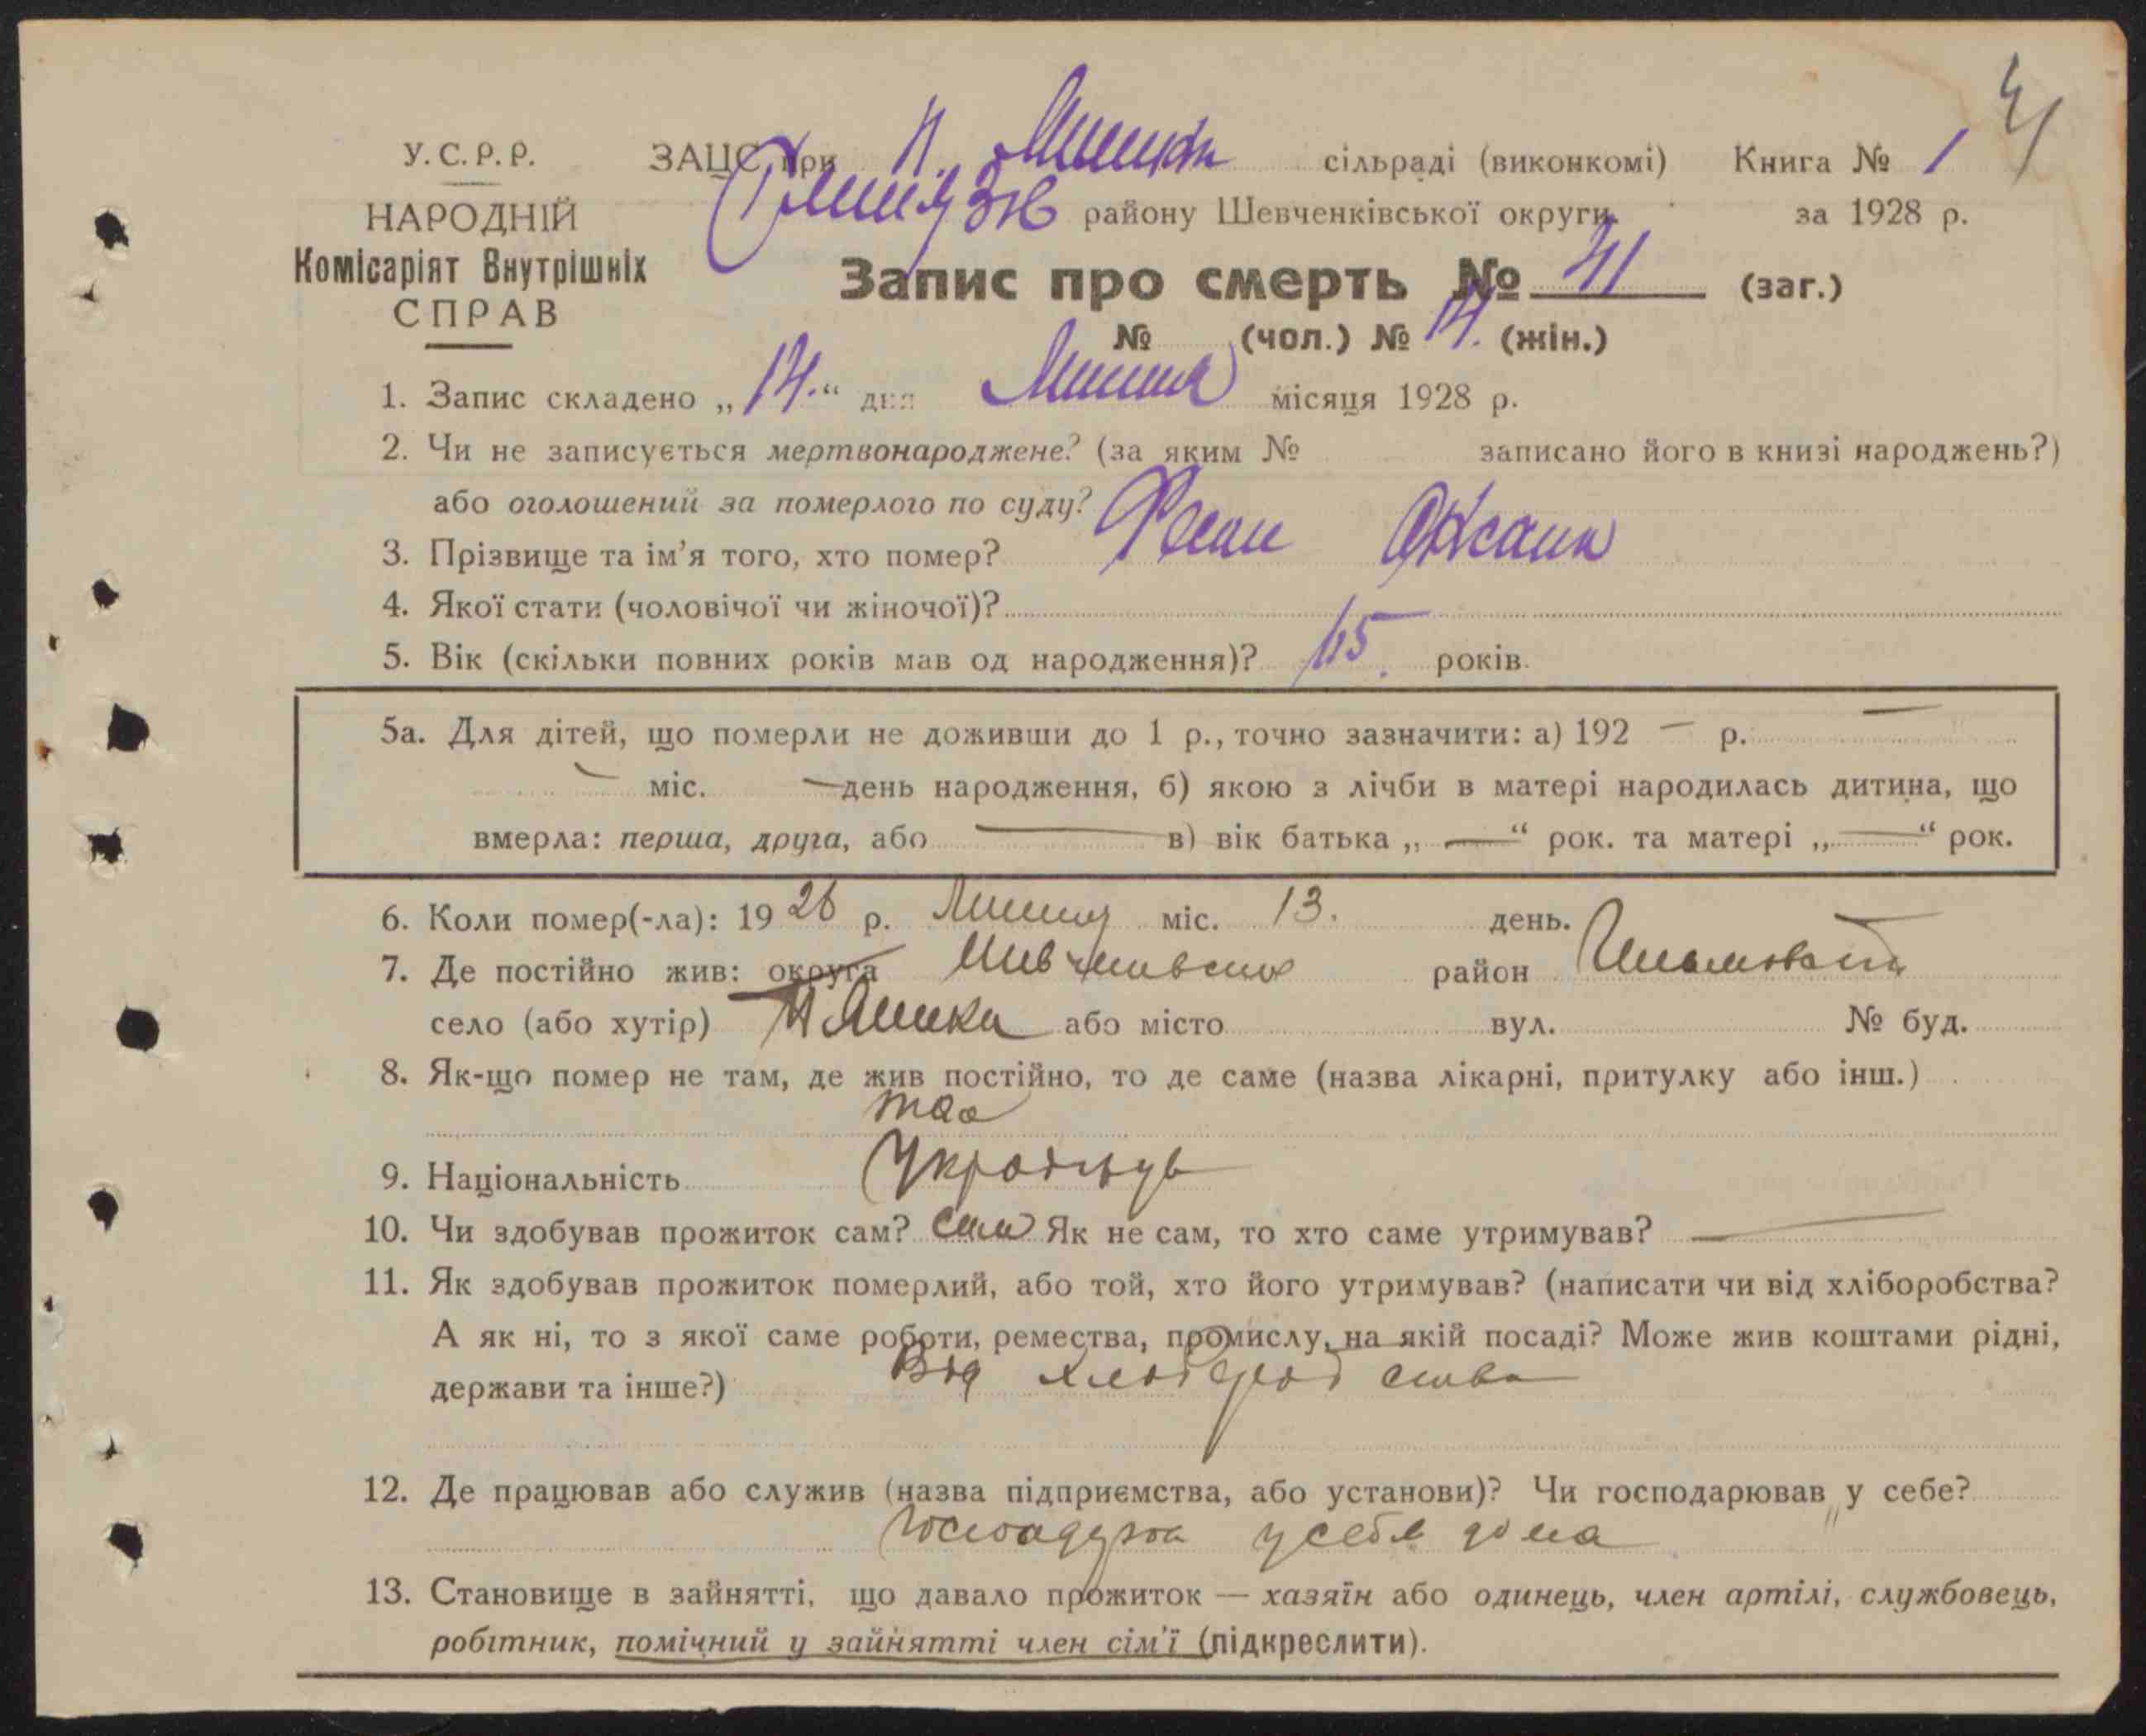 41
У.С.Р.Р. ЗАЦС при сільраді (виконкомі) Книга № 1
НАРОДНІЙ району Шевченківської округи за 1928 р.
Комісаріят Внутрішніх
СПРАВ
Запис про смерть № 41 (заг.)
№ (чол.) № 14. (жін.)
1. Запис складено „14.“ дня Липня місяця 1928 р.
2. Чи не записується мертвонароджене? (за яким № записано його в книзі народжень?)
або оголошений за померлого по суду?
3. Прізвище та ім’я того, хто помер? Оксана
4. Якої стати (чоловічої чи жіночої)?
5. Вік (скільки повних років мав од народження)? 65. років.
5а. Для дітей, що померли не доживши до 1 р., точно зазначити: а) 192 — р. —
— міс. — день народження, б) якою з лічби в матері народилась дитина, що
вмерла: перша, друга, або — в) вік батька „—“ рок. та матері „—“ рок.
6. Коли помер(-ла): 1928 р. Липня міс. 13. день.
7. Де постійно жив: округа район
село (або хутір) або місто вул. № буд.
8. Як-що помер не там, де жив постійно, то де саме (назва лікарні, притулку або інш.)
9. Національність
10. Чи здобував прожиток сам? сам Як не сам, то хто саме утримував? —
11. Як здобував прожиток померлий, або той, хто його утримував? (написати чи від хліборобства?
А як ні, то з якої саме роботи, ремества, промислу, на якій посаді? Може жив коштами рідні,
держави та інше?) Від хліборобства
12. Де працював або служив (назва підприємства, або установи)? Чи господарював у себе?
у себе дома
13. Становище в зайнятті, що давало прожиток — хазяїн або одинець, член артілі, службовець,
робітник, помічний у зайнятті член сім’ї (підкреслити).